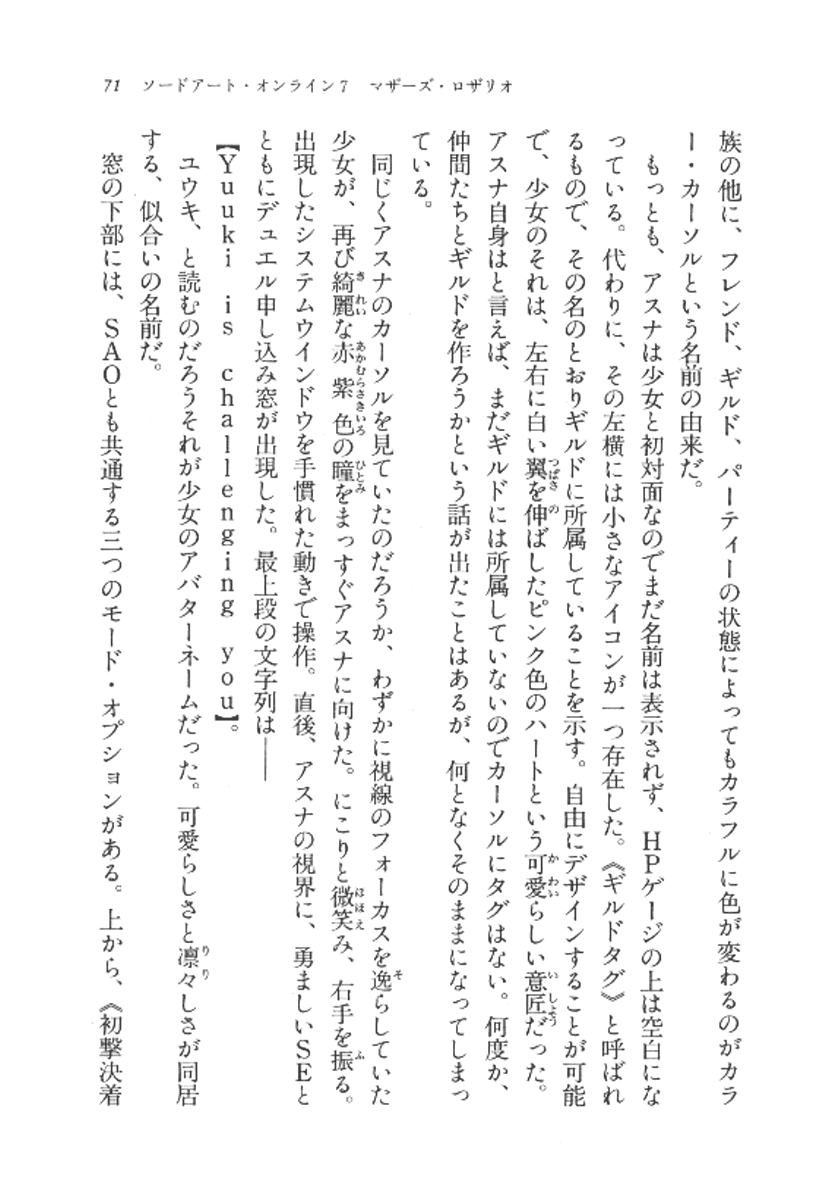 71 ソードアート・オンライン7 マザーズ・ロザリオ
族の他に、フレンド、ギルド、パーティーの状態によってもカラフルに色が変わるのがカラ
ー・カーソルという名前の由来だ。
もっとも、アスナは少女と初対面なのでまだ名前は表示されず、HPゲージの上は空白にな
っている。代わりに、その左横には小さなアイコンが一つ存在した。《ギルドタグ》と呼ばれ
るもので、その名のとおりギルドに所属していることを示す。自由にデザインすることが可能
で、少女のそれは、左右に白い翼を伸ばしたピンク色のハートという可愛らしい意匠だった。
アスナ自身はと言えば、まだギルドには所属していないのでカーソルにタグはない。何度か、
仲間たちとギルドを作ろうかという話が出たことはあるが、何となくそのままになってしまっ
ている。
同じくアスナのカーソルを見ていたのだろうか、わずかに視線のフォーカスを逸らしていた
少女が、再び綺麗な赤紫色の瞳をまっすぐアスナに向けた。にこりと微笑み、右手を振る。
出現したシステムウインドウを手慣れた動きで操作。直後、アスナの視界に、勇ましいSEと
ともにデュエル申し込み窓が出現した。最上段の文字列は――
【Yuuki is challenging you】。
ユウキ、と読むのだろうそれが少女のアバターネームだった。可愛らしさと凛々しさが同居
する、似合いの名前だ。
窓の下部には、SAOとも共通する三つのモード・オプションがある。上から、《初撃決着